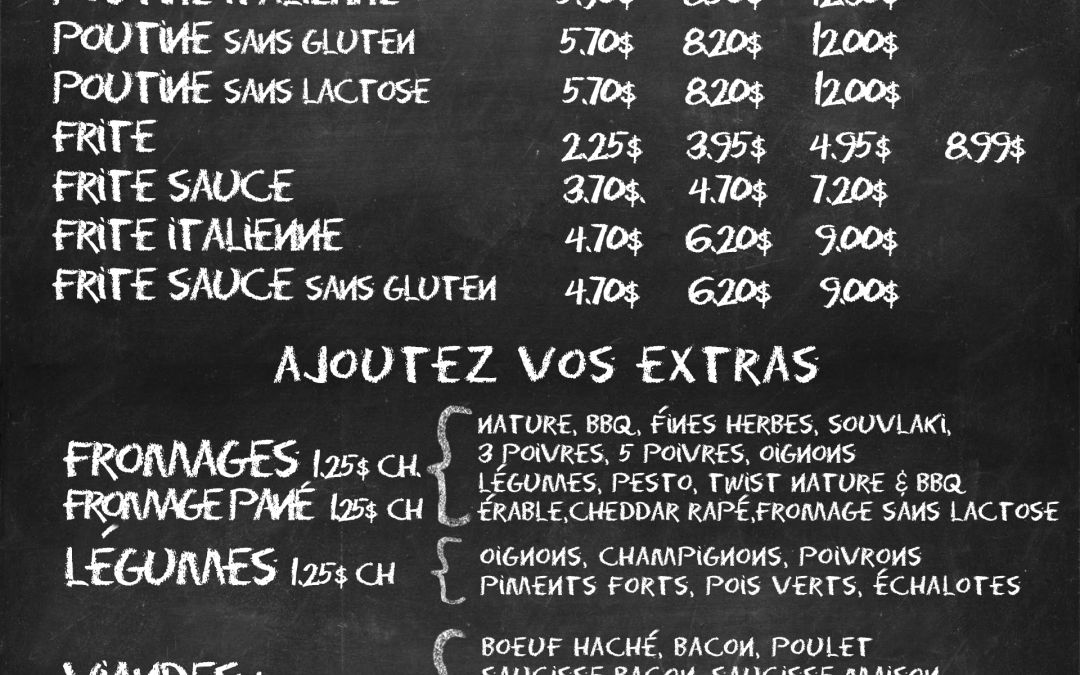 POUTINE ITALIENNE 12.00$
POUTINE SANS GLUTEN 5.70$ 8.20$ 12.00$
POUTINE SANS LACTOSE 5.70$ 8.20$ 12.00$
FRITE 2.25$ 3.95$ 4.95$ 8.99$
FRITE SAUCE 3.70$ 4.70$ 7.20$
FRITE ITALIENNE 4.70$ 6.20$ 9.00$
FRITE SAUCE SANS GLUTEN 4.70$ 6.20$ 9.00$
AJOUTEZ VOS EXTRAS
NATURE, BBQ, FINES HERBES, SOUVLAKI,
FROMAGES 1.25$ CH. 3 POIVRES, 5 POIVRES, OIGNONS
LÉGUMES, PESTO, TWIST NATURE & BBQ
FROMAGE PANÉ 1.25$ CH ÉRABLE,CHEDDAR RAPÉ,FROMAGE SANS LACTOSE
LÉGUMES 1.25$ CH OIGNONS, CHAMPIGNONS, POIVRONS
PIMENTS FORTS, POIS VERTS, ÉCHALOTES
BOEUF HACHÉ, BACON, POULET
VIANDES SAUCISSE BACON, SAUCISSE MAISON